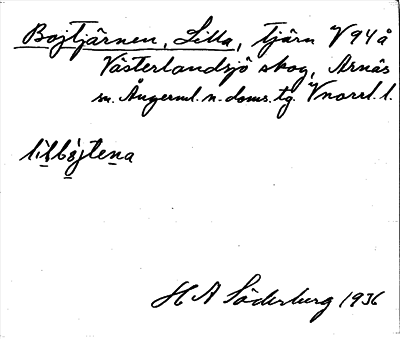 Bojtjärnen, Lilla, tjärn V 94 å
Västerlandsjö skog, Arnäs
sn. Ångerml. n. doms. tg. Vnorrl. l.
H A Söderberg 1936